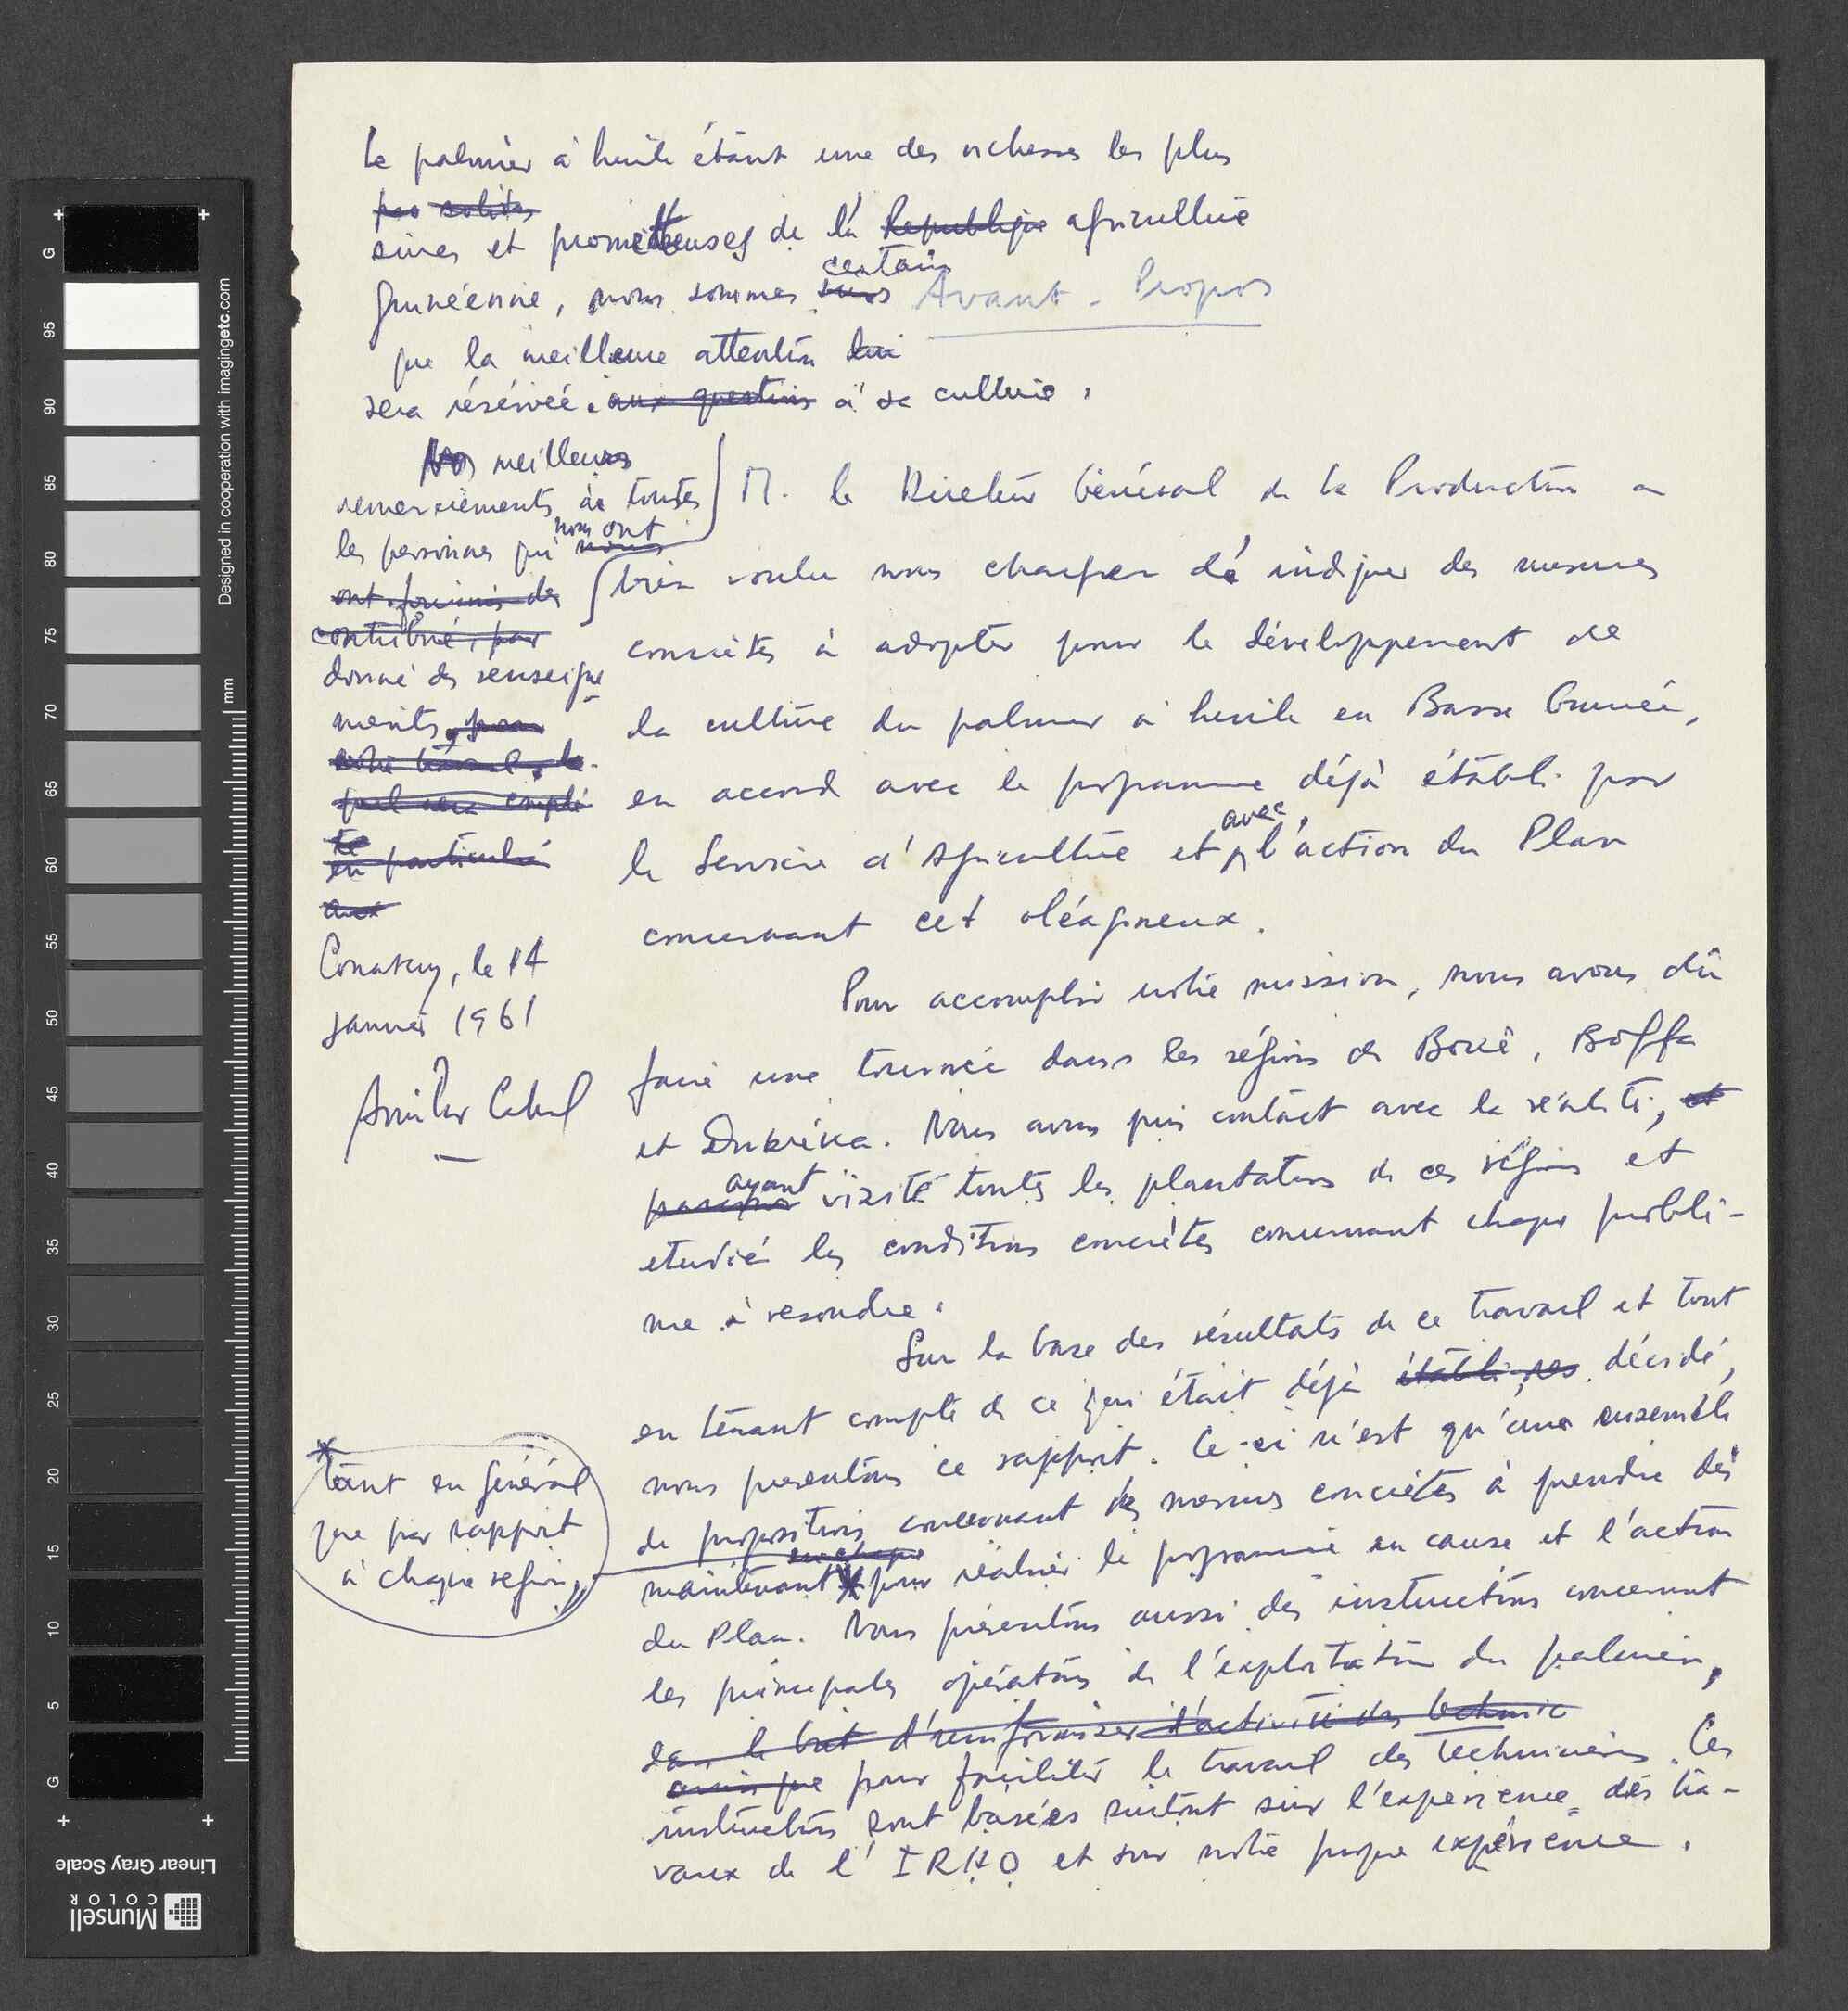 Avant-Propos
M. le Directeur Général de la Production a
bien voulu nous charger d'indiquer des mesures
concrètes à adopter pour le développement de
la culture du palmier à huile en Basse Guinée,
en accord avec le programme déjà établi par
le Service d'Agriculture et avec l'action du Plan
concernant cet oléagineux.
Pour accomplir notre mission, nous avons dû
faire une tournée dans les régions de Boké, Boffa
et Dubréka. Nous avons pris contact avec la réalité, et
ayant visité toutes les plantations de ces régions et
etudié les conditions concrètes concernant chaque problè-
me à resoudre.
Sur la base des résultats de ce travail et tout
en tenant compte de ce qui était déjà établi, nos décidé,
nous presentons ce rapport. Ce-ci n'est qu'une ensemble
de propositions concernant des mesures concrètes à prendre dès
en chaque
maintenant * pour réaliser le programme en cause et l'action
du Plan. Nous présentons aussi des instructions concernant
les principales opérations de l'exploitation du palmier,
dans le but d'uniformiser l'activité des technic
ainsi que pour faciliter le travail des techniciens. Ces
instructions sont basées surtout sur l'experience des tra-
vaux de l'IRHO et sur notre propre expérience.
* tant en général
que par rapport
à chaque region,
Le palmier à huile étant une des richesses les plus
solides
sures et prometteuses de la Republique agriculture
guinéenne, nous sommes surs certains
que la meilleure attention lui
sera réservée aux questions à sa culture.
Nos meilleurs
remerciements à toutes
les personnes qui nous nous ont
ont fourni des
contribué, par
donné des renseigne
ments, pour
notre travail, le
quel sera complé
té
en particulier
aux
Conakry, le 14
Janvier 1961
Amilcar Cabral
G
95
90
85
80
75
70
65
60
55
50
45
40
35
30
25
20
15
10
5
G
mm
Designed in cooperation with imagingetc.com
Linear Gray Scale
Munsell
COLOR